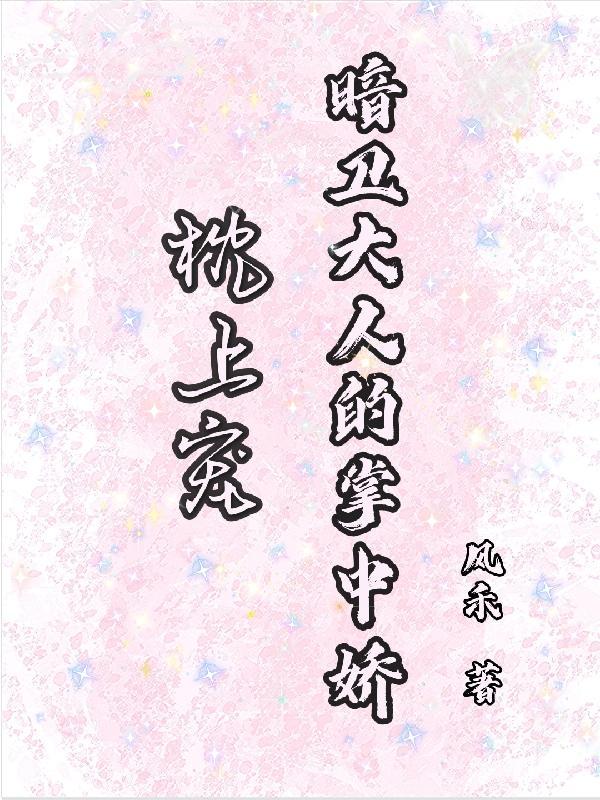 暗卫大人的掌中娇
枕上宠
风禾 著